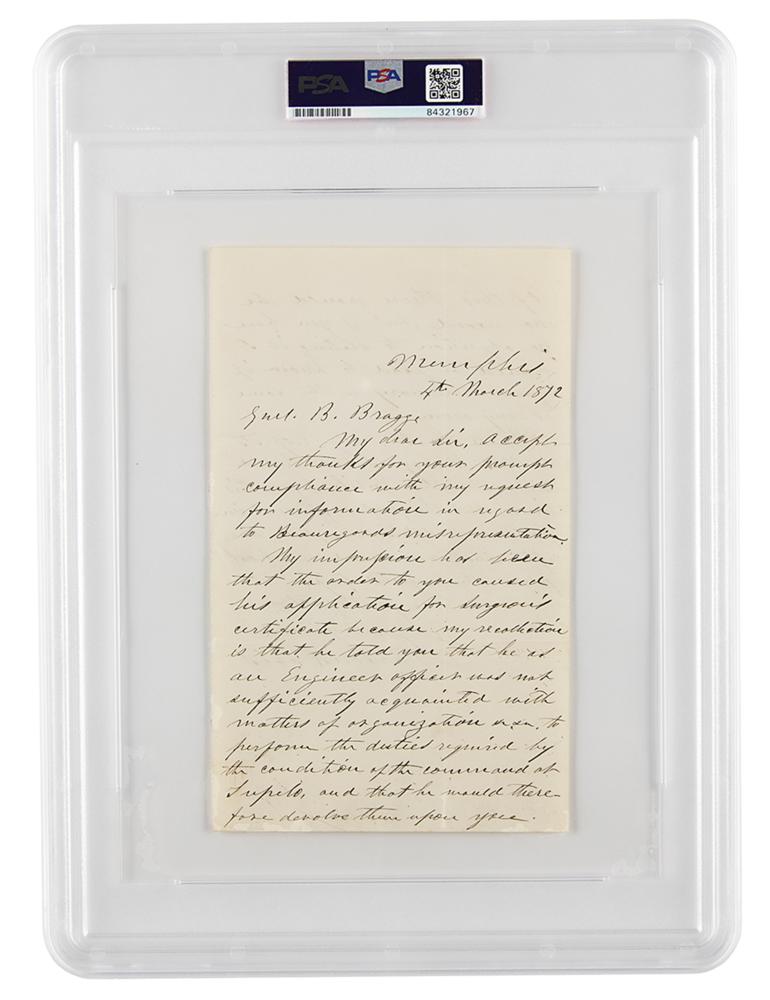 PSA
PSA
84321967
Memphis
4th March 1872
Genl. B. Bragg
My dear Sir, Accept
my thanks for your prompt
compliance with my request
for information in regard
to Beauregards misrepresentation.
My impression has been
that the order to you caused
his application for Surgeon's
certificate because my recollection
is that he told you that he as
an Engineer officer was not
sufficiently acquainted with
matters of organization &c &c. to
perform the duties required by
the condition of the command at
Tupilo, and that he would there-
fore devolve them upon you.